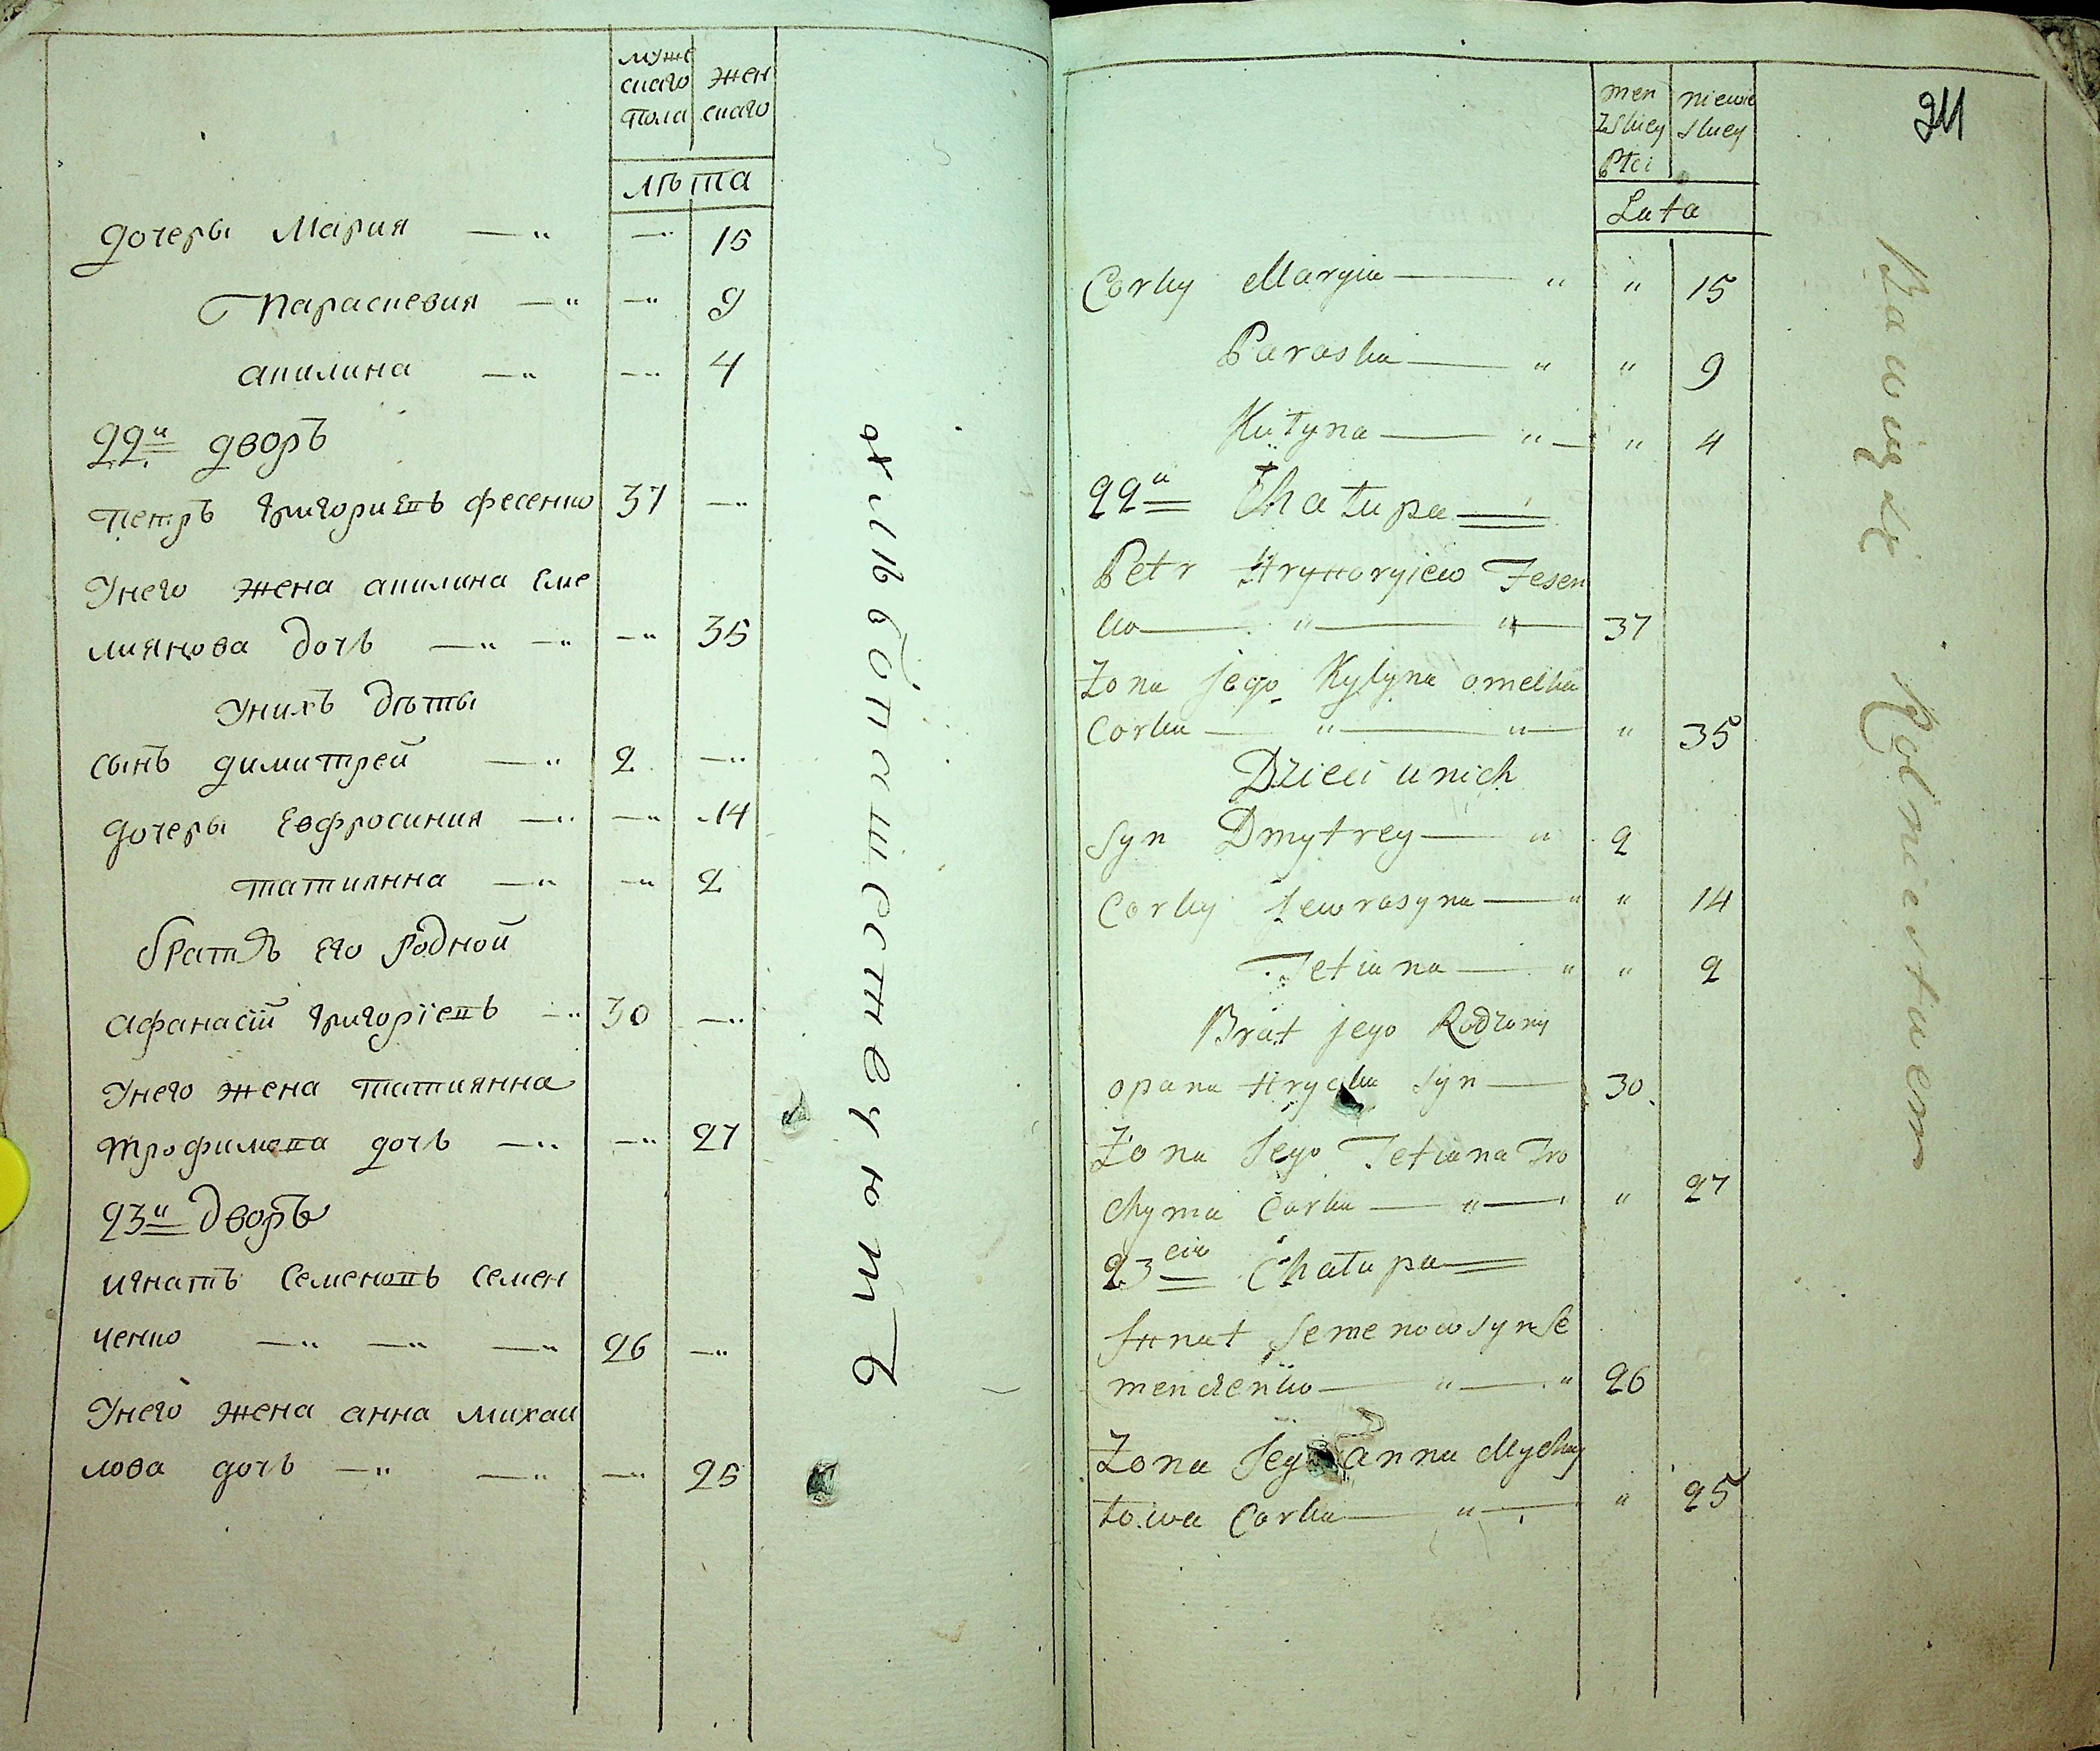 муже
скаго жен
пола скаго
лѣта
дочеры Мария —„ —„ 15
Параскевия —„ —„ 9
акилина —„ —„ 4
22й дворъ
Петръ Григориевъ фесенко 37 —„
Унего жена акилина Еме
лиянова дочь —„ —„ —„ 35
Унихъ дѣты
сынъ димитрей —„ 2 —„
дочеры Евфросиния —„ —„ 14
татиянна —„ —„ 2
братъ его родной
афанасій Григоріевъ —„ 30 —„
Унего жена татиянна
трофимова дочь —„ —„ 27
23й дворъ
игнатъ Семеновъ Семен
ченко —„ —„ —„ 26 —„
Унего жена анна михаи
лова дочь —„ —„ —„ 25
хлѣбопашествуютъ
24
men niewie
zskiey skiey
Płci
Lata
Corky Maryia — „ „ 15
Paraska — „ „ 9
Kiłyna — „ — „ 4
22a Chałupa
Petr Hryhoryiew Fesen
ko — „ — „ — 37
Żona jego Kylyna omelka
Corka — „ — „ — „ 35
Dzieci u nich
Syn Dmytrey — „ 2
Corky Jewrasyna — „ „ 14
Tetiana — „ „ 2
Brat jego Rodzony
opana Hryćka Syn — 30
Żona Jego Tetiana Tro
chyma Corka — „ — „ 27
23cia Chałupa
Ihnat Semenow syn Se
menczenko — „ — „ 26
Żona Jego anna Mychay
łowa Corka — „ — „ 25
Bawią się Rolnictwem